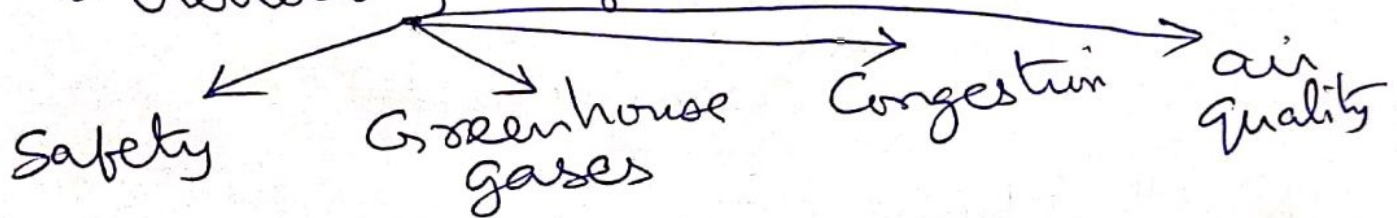 Safety
Greenhouse
gases
Congestion
air
quality